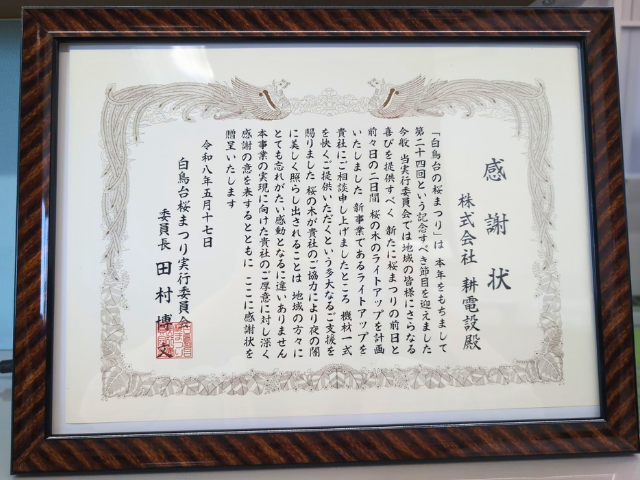 感謝状
株式会社 耕電設殿
「白鳥台の桜まつり」は 本年をもちまして
第二十四回という記念すべき節目を迎えました
今般 当実行委員会では地域の皆様にさらなる
喜びを提供すべく 新たに桜まつりの前日と
前々日の二日間 桜の木のライトアップを計画
いたしました 新事業であるライトアップを
貴社にご相談申し上げましたところ 機材一式
を快くご提供いただくという多大なるご支援を
賜りました 桜の木が貴社のご協力により夜の闇
に美しく照らし出されることは 地域の方々に
とても忘れがたい感動となるに違いありません
本事業の実現に向けた貴社のご厚意に対し深く
感謝の意を表するとともに ここに感謝状を
贈呈いたします
令和八年五月十七日
白鳥台桜まつり実行委員会
委員長 田村 博文